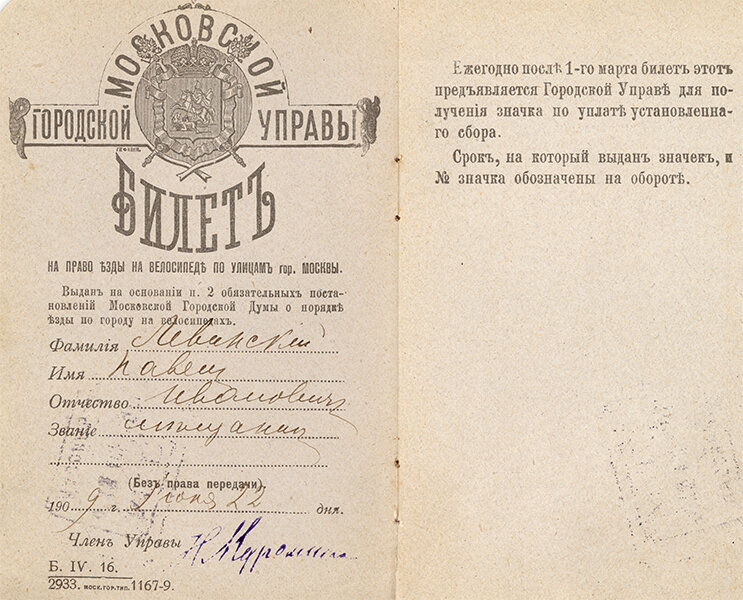 МОСКОВСКОЙ
ГОРОДСКОЙ УПРАВЫ
БИЛЕТЪ
НА ПРАВО ѢЗДЫ НА ВЕЛОСИПЕДѢ ПО УЛИЦАМЪ гор. МОСКВЫ.
Выданъ на основаніи п. 2 обязательныхъ поста-
новленій Московской Городской Думы о порядкѣ
ѣзды по городу на велосипедахъ.
Фамилія Левинскій
Имя Павелъ
Отчество Ивановичъ
Званіе мѣщанинъ
(Безъ права передачи).
1909 г. Іюня 22 дня.
Членъ Управы
Б. IV. 16.
2933. МОСК.ГОР.ТИП. 1167-9.
Ежегодно послѣ 1-го марта билетъ этотъ
предъявляется Городской Управѣ для по-
лученія значка по уплатѣ установленна-
го сбора.
Срокъ, на который выданъ значекъ, и
№ значка обозначены на оборотѣ.